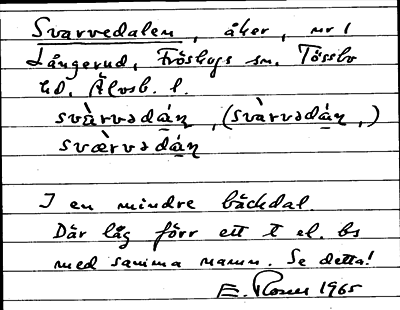 Svarvedalen, åker, nr 1
Långerud, Fröskogs sn. Tössbo
hd. Älvsb. l.
svàrvədáṇ, (svàrvədáṇ,)
sværvədáṇ
I en mindre bäckdal
Där låg förr ett t el. bs
med samma namn. Se detta!
E. 1965